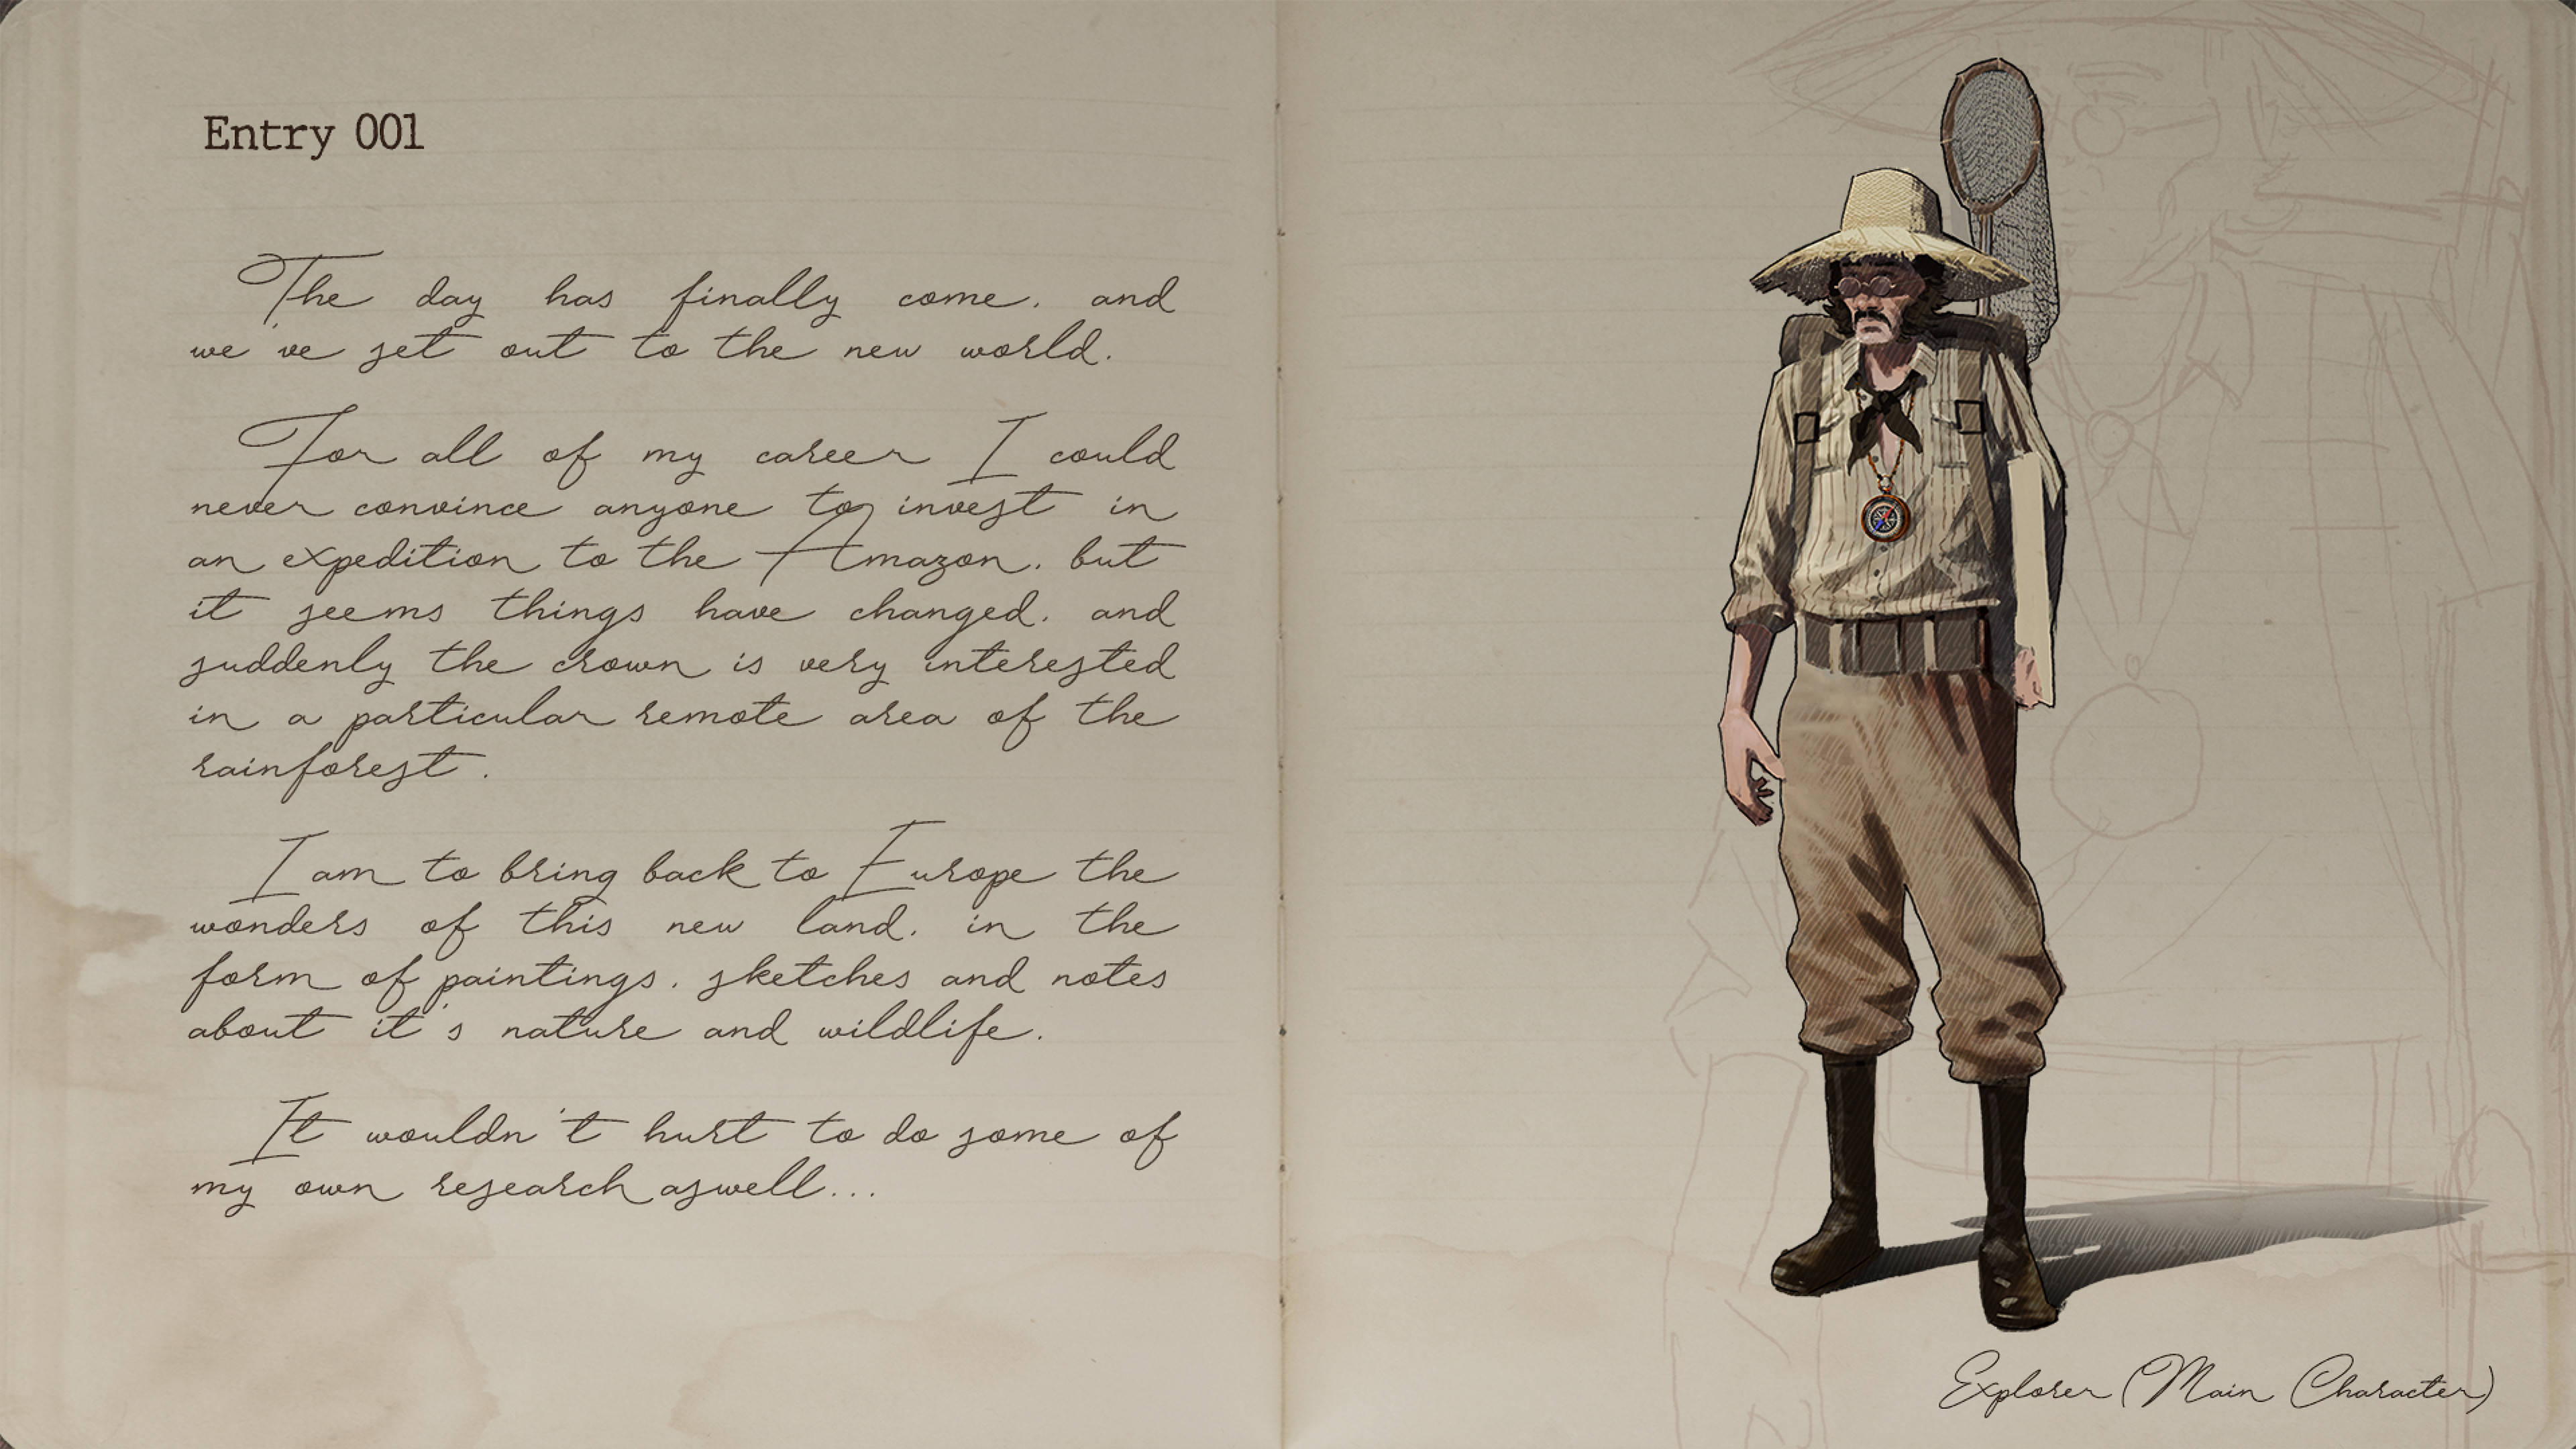 Entry 001
The day has finally come, and
we've set out to the new world.
For all of my career I could
never convince anyone to invest in
an expedition to the Amazon, but
it seems things have changed, and
suddenly the crown is very interested
in a particular remote area of the
rainforest.
I am to bring back to Europe the
wonders of this new land, in the
form of paintings, sketches and notes
about it's nature and wildlife.
It wouldn't hurt to do some of
my own research aswell...
Explorer (Main Character)